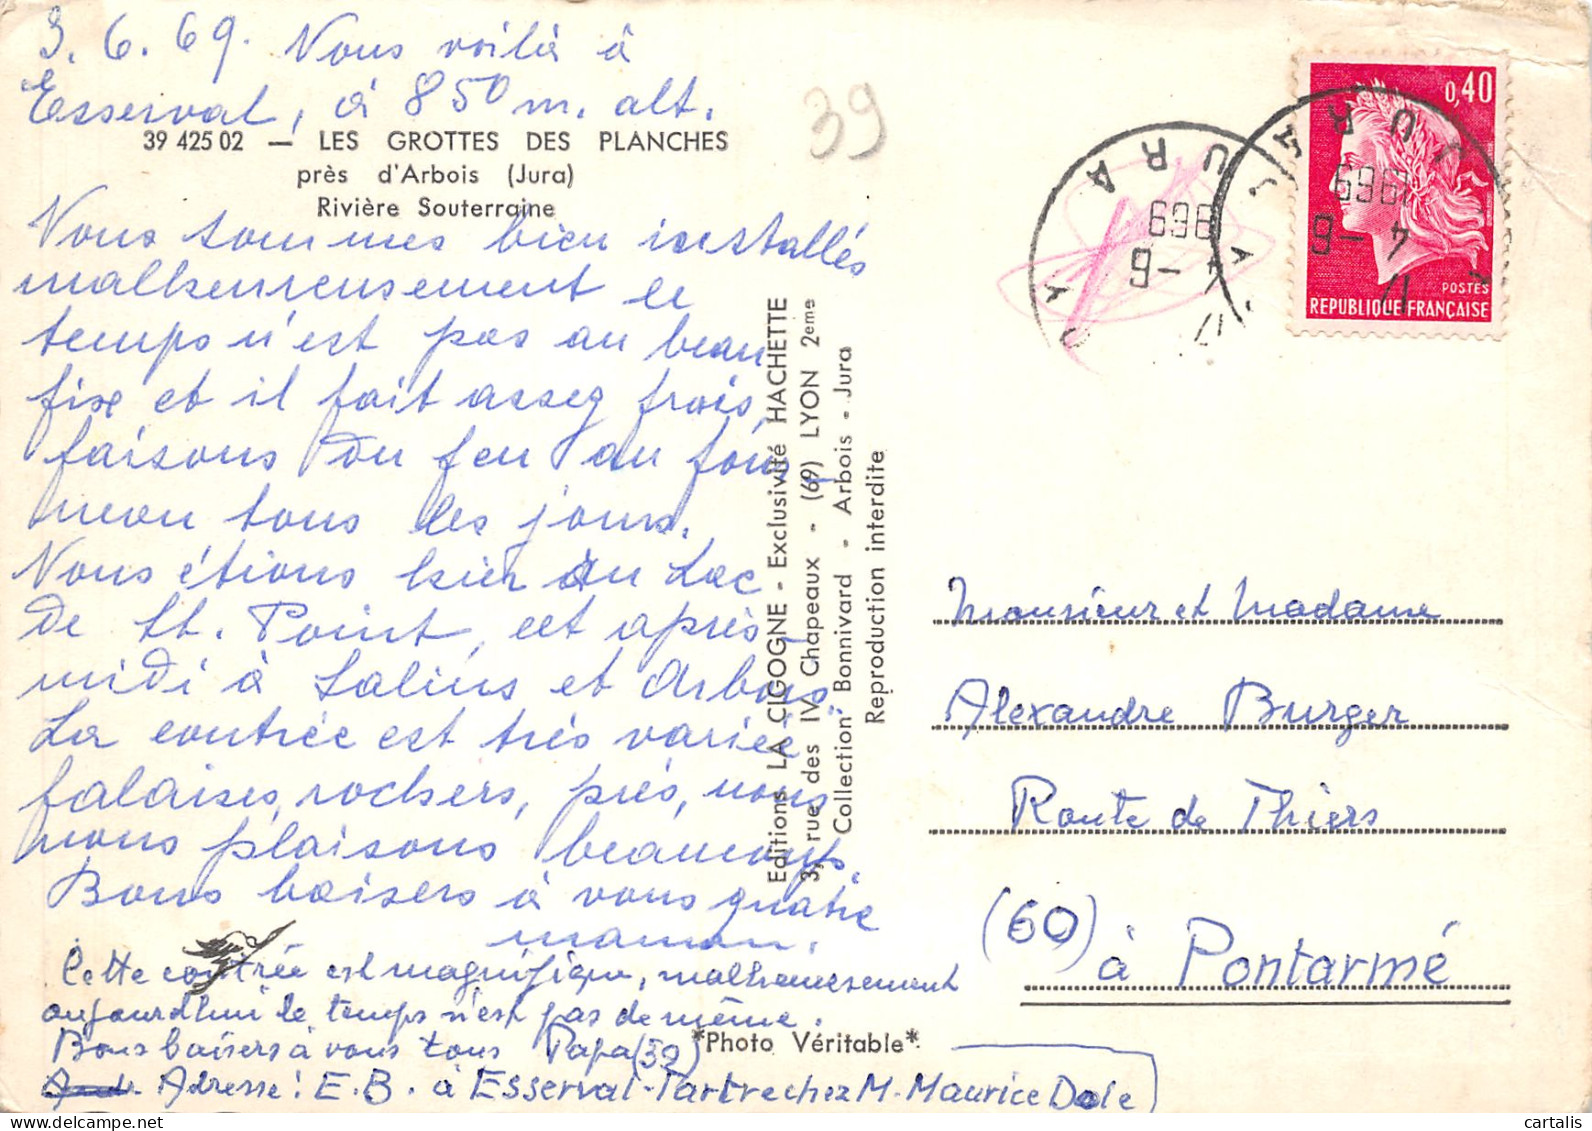 3.6.69. Nous voilà à
Esserval, à 850 m. alt.
39 425 02 — LES GROTTES DES PLANCHES
près d'Arbois (Jura)
Rivière Souterraine
Nous sommes bien installés
malheureusement le
temps n'est pas au beau
fixe et il fait assez frois,
faisons du feu au four-
neau tous les jours.
Nous étions hier au Lac
de St. Point, cet après-
midi à Salins et Arbois.
La contrée est très variée
falaises, rochers, prés, nous
nous plaisons beaucoup.
Bons baisers à vous quatre
maman.
Cette contrée est magnifique, malheureusement
aujourd'hui le temps n'est pas de même.
Bons baisers à vous tous Papa (39)
Adresse: E.B. à Esserval-Tartre chez M. Maurice Dole
*Photo Véritable*
Editions LA CIGOGNE - Exclusivité HACHETTE
3, rue des IV Chapeaux - (69) LYON 2eme
Collection Bonnivard - Arbois - Jura
Reproduction interdite
39
JURA
969
-6
JURA
17
4 -6
1969
0,40
POSTES
REPUBLIQUE FRANÇAISE
Monsieur et Madame
Alexandre Burger
Route de Thiers
(60) à Pontarmé
cartalis